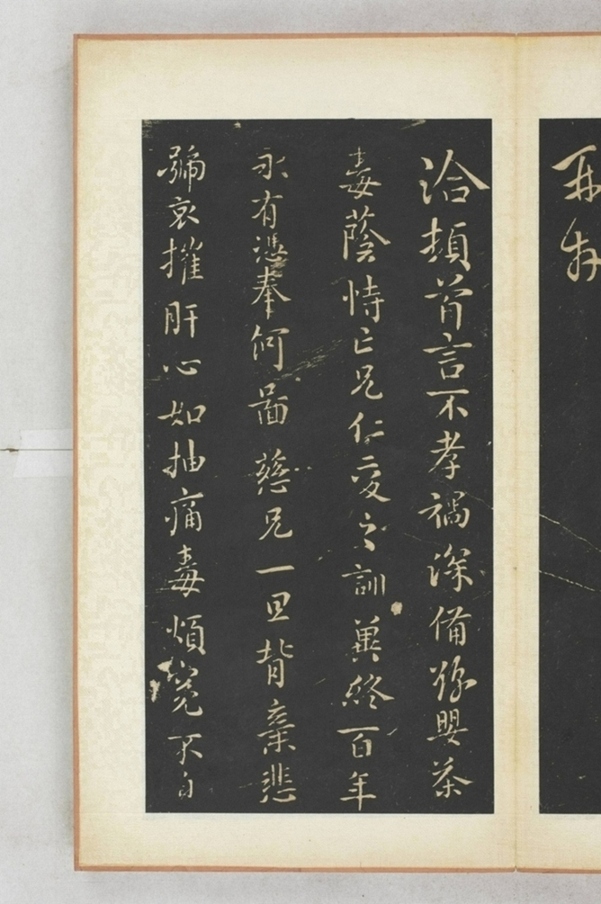 再拜
洽頓首言不孝禍深備豫嬰荼
毒蔭恃亡兄仁愛之訓冀終百年
永有憑奉何圖慈兄一旦背棄悲
號哀摧肝心如抽痛毒煩冤不自